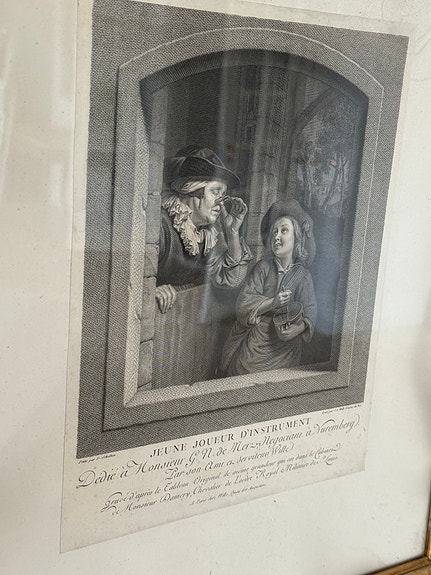 Peint par G. Schalken
JEUNE JOUEUR D'INSTRUMENT
Dedié à Monsieur G. N. de Merz, Negociant à Nuremberg
Par son Ami et Serviteur Wille
Gravé d'après le Tableau Original de meme grandeur qui est dans le Cabinet
de Monsieur Damery, Chevalier de l'ordre Royal Militaire de St Louis
A Paris chez Wille, Quay des Augustins